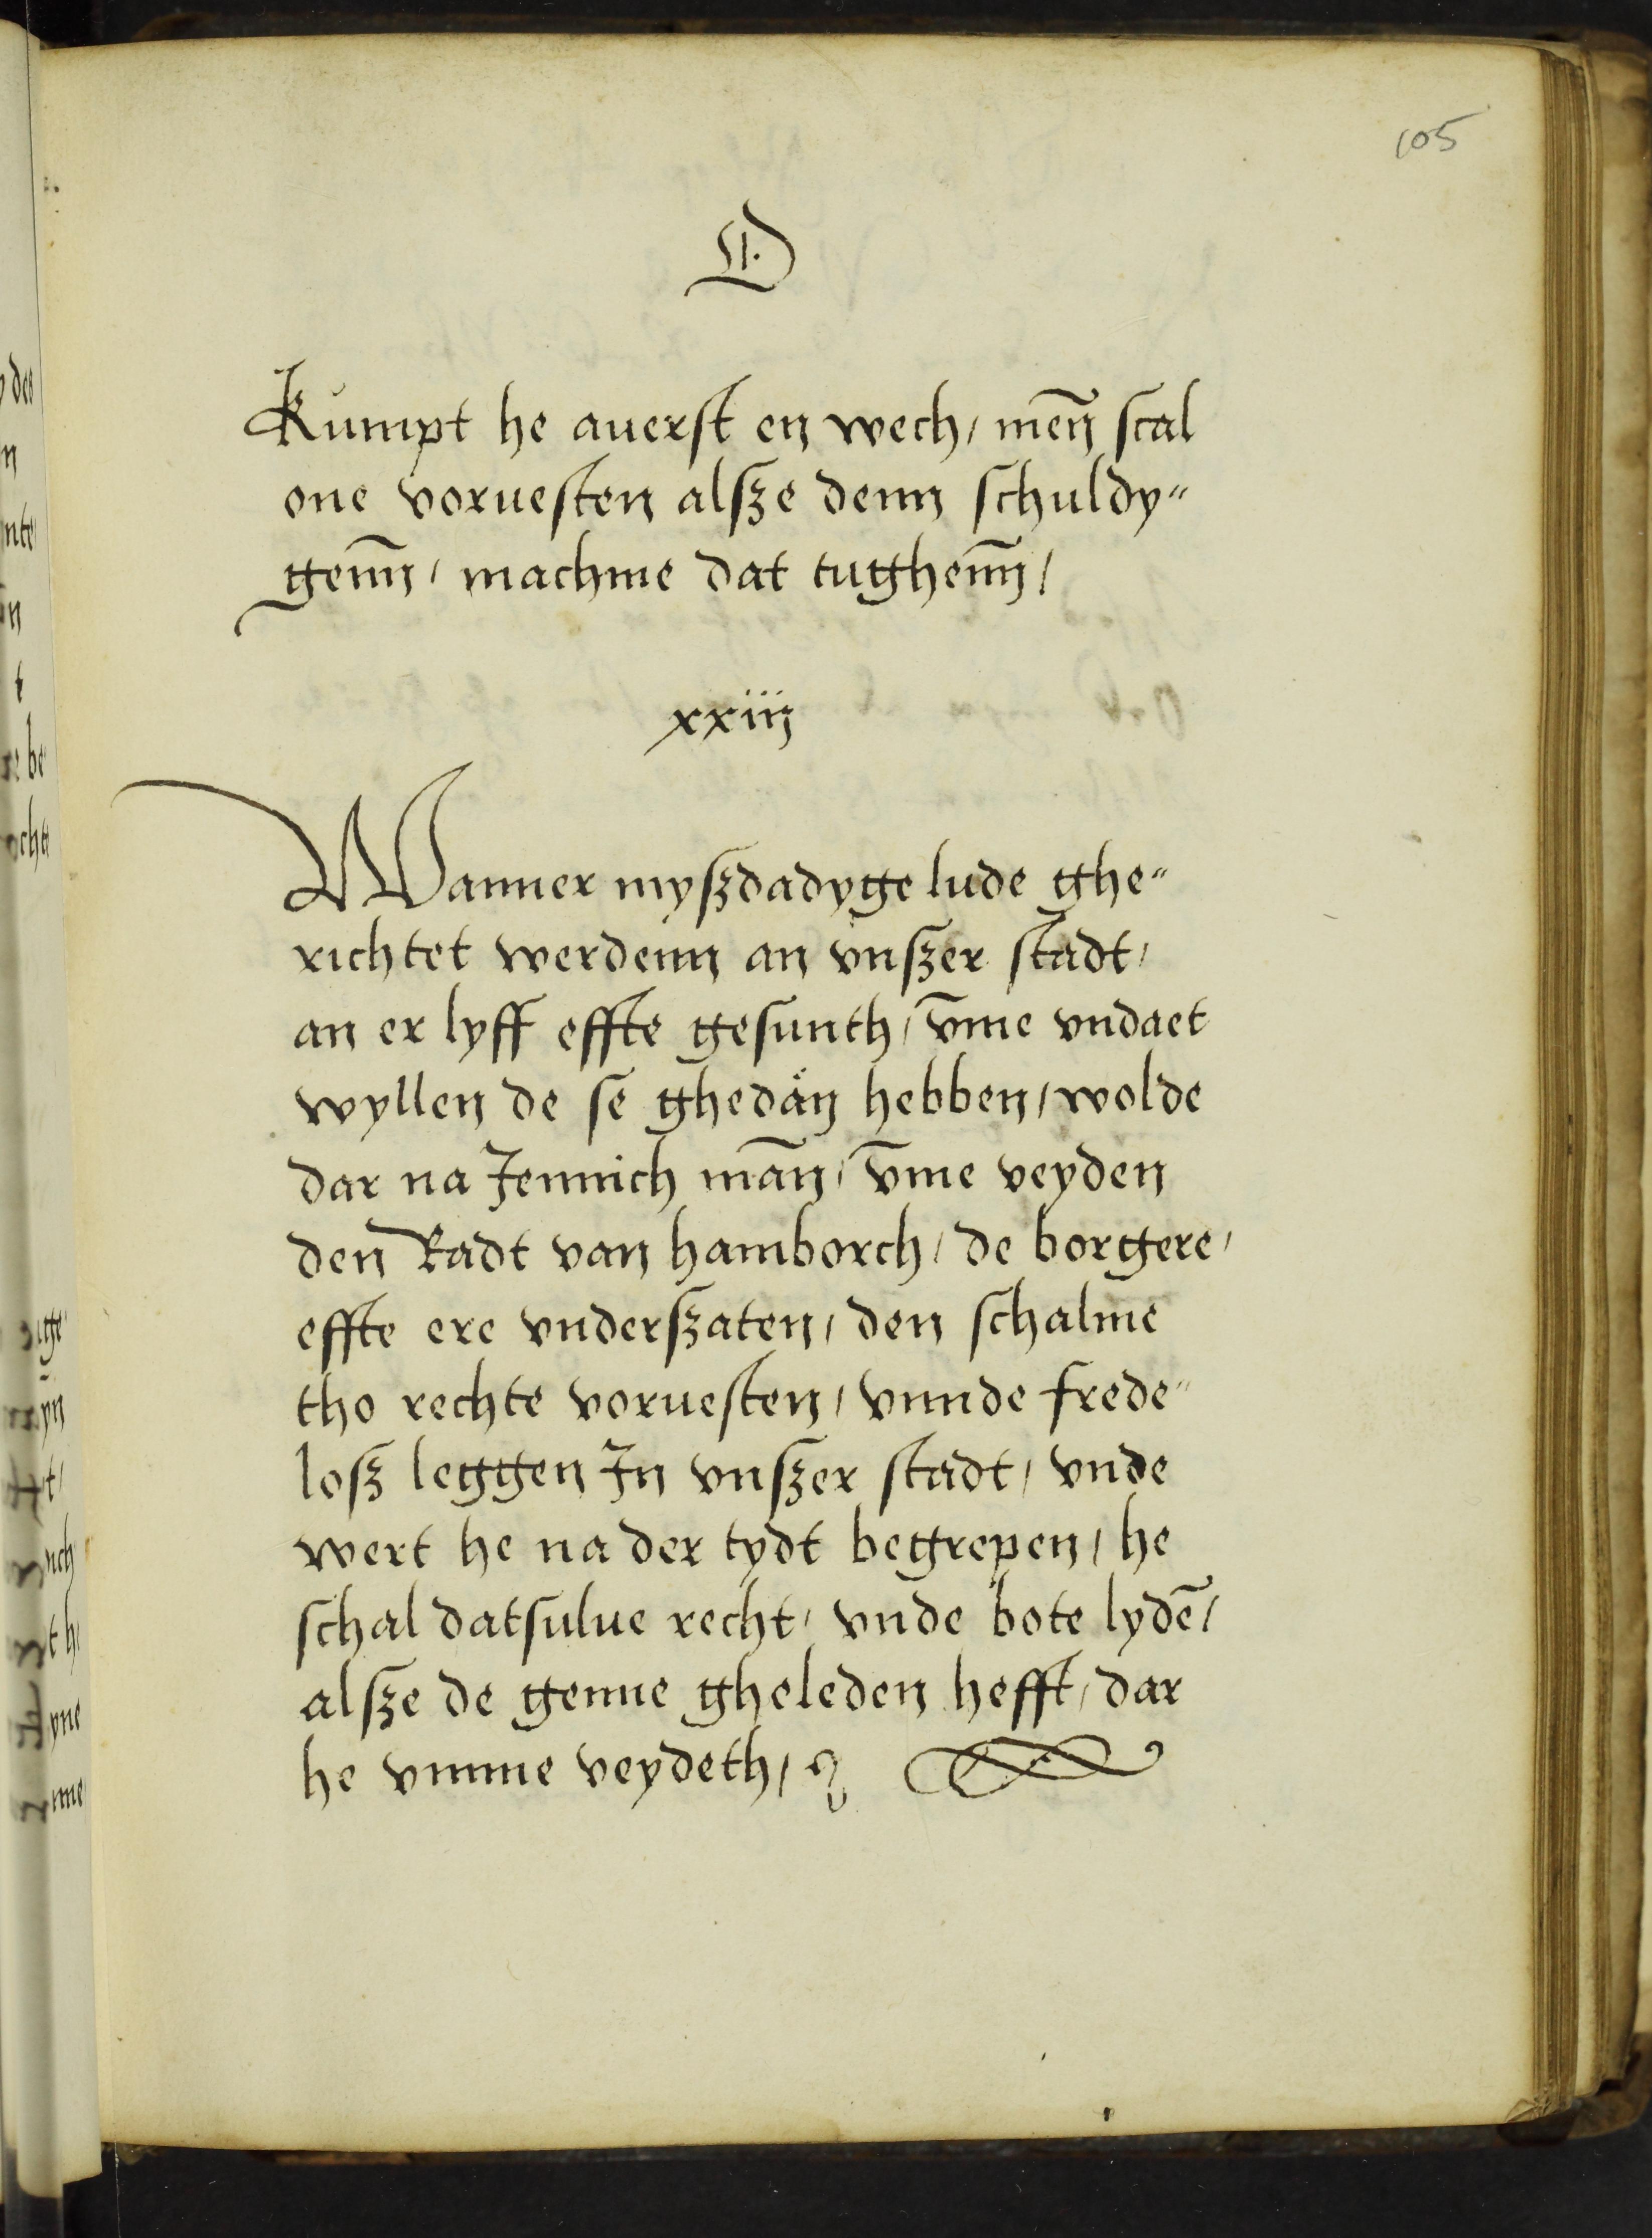 105
O
Kumpt he auerst en wech/ men̄ scal
one voruesten alsze denn schuldy"
genn̄/ machme dat tughenn̄/
xxiiij
Wanner myszdadyge lude ghe"
richtet werdenn an vnszer stadt/
an er lyff effte gesunth/ v̄me vndaet
wyllen de se ghedån hebben/ wolde
dar na Jennich mān/ v̄me veyden
den Radt van hamborch/ de borgere/
effte ere vnderszaten/ den schalme
tho rechte voruesten/ vnnde frede"
losz leggen In vnszer stadt/ vnde
wert he na der tydt begrepen/ he
schal datsulue recht/ vnde bote lydē/
alsze de genne gheleden hefft/ dar
he vmme veydeth/